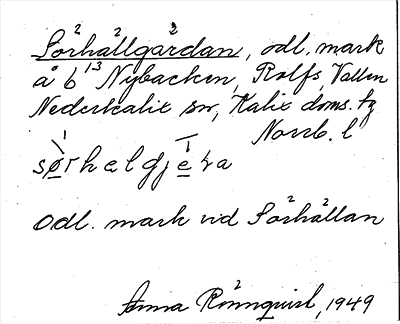 Sörhällgärdan, odl. mark
å b 13 Nybacken, Rolfs, Vallen
Nederkalix sn, Kalix doms. tg
Norrb. l
sørhelgjera
Odl. mark vid Sörhällan
Anna Rönnquist, 1949